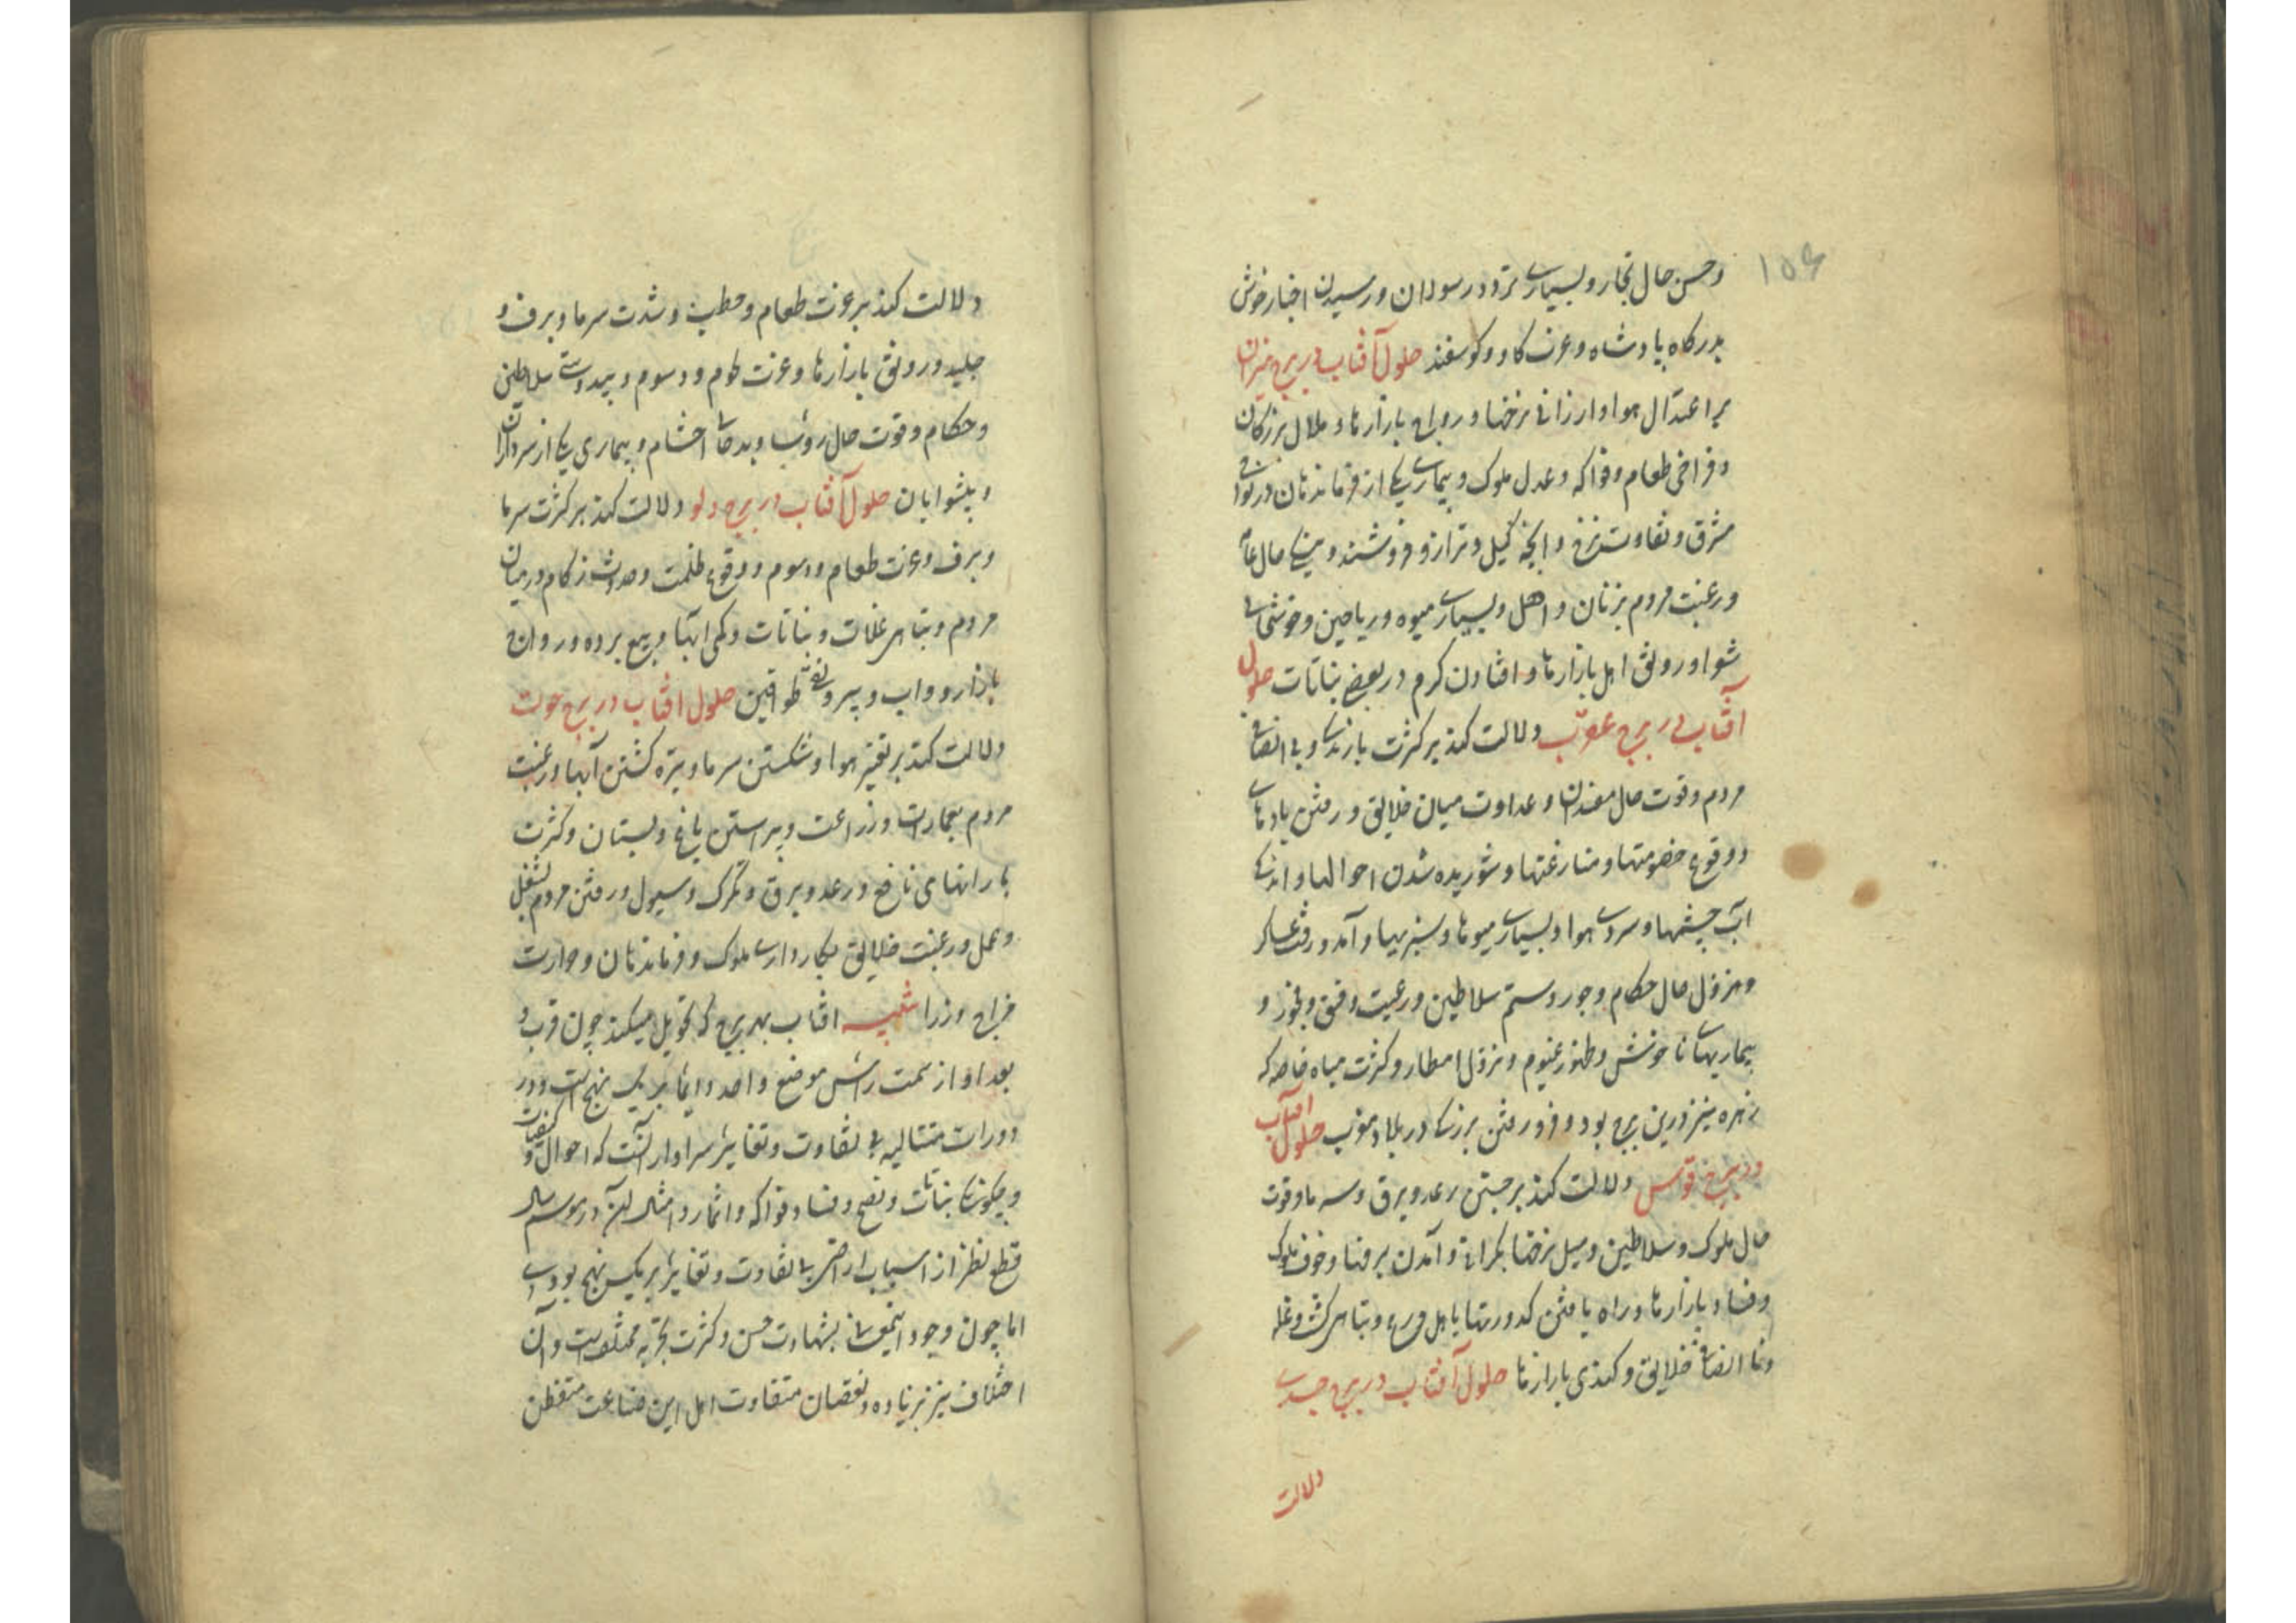 ۱۵۶
و حسن حال تجار و بسیاری تردد رسولان و رسیدن اخبار خوش
بدرکاه پادشاه و عزت کاو و کوسفند حلول آفتاب در برج میزان
بر اعتدال هوا و ارزانی نرخها و رواج بازارها و ملال بزرکان
و فراخی طعام و فواکه و عدل ملوک و بیماری یکی از فرماندهان در نواحی
مشرق و تفاوت نرخ و انچه کیل و ترازو فروشند و نیکی حال عامه
و رغبت مردم بزنان و اهل و بسیاری میوه و ریاحین و خوشی
شوا و رونق اهل بازارها و افتادن کرم در بعضی نباتات حلول
آفتاب در برج عقرب دلالت کند بر کثرت بارندکی و بی انصافی
مردم و قوت حال مفسدان و عداوت میان خلایق و رفتن بادهای
و وقوع خصومتها و منازعتها و شوریده شدن احوالها و اندکی
آب چشمها و سردی هوا و بسیاری میوها و سبزیها و آمد و رفت عساکر
و هزل حال حکام و جور و ستم سلاطین و رعیت و فسق و فجور و
بیماریهای ناخوش و ظهور غیوم و نزول امطار و کثرت میاه خاصه که
زهره نیز درین برج بود و فرو رفتن بزرکی در بلاد مغرب حلول آفتاب
در برج قوس دلالت کند بر جستن رعد و برق و سرما و قوت
حال ملوک و سلاطین و میل نرخها بکرانی و آمدن برفها و خوف ملوک
و فساد بازارها و راه یافتن کدورتها باهل ورع و تباهی کشت و غله
و نا انصافی خلایق و کندی بازارها حلول آفتاب در برج جدی
دلالت
دلالت کند بر عزت طعام و حطب و شدت سرما و برف و
جلید و رونق بازارها و عزت لحوم و دسوم و سلاطین
و حکام و قوت حال رؤسا و بدحالی احشام و بیماری یکی از سرداران
و پیشوایان حلول آفتاب در برج دلو دلالت کند بر کثرت سرما
و برف و عزت طعام و دسوم و وقوع ظلمت و حدوث زکام در میان
مردم و تباهی غلات و نباتات و کمی آبها و بیع برده و رواج
بازار دواب و طواقین حلول آفتاب در برج حوت
دلالت کند بر تغیر هوا و شکستن سرما و تیره کشتن آبها و رغبت
مردم بعمارات و زراعت و پیراستن باغ و بستان و کثرت
بارانهای نافع و رعد و برق و تکرک و سیول و رفتن مردم بشغل
و عمل و رغبت خلایق بکارداری ملوک و فرماندهان و حرارت
مزاج وزرا تنبیه آفتاب بهر برج که تحویل میکند چون قرب و
بعد او از سمت رأس موضع واحد دائما بر یک نهج است و در
دورات متتالیه بی تفاوت و تغایر سزاوار آنست که احوال و کیفیات
و چکونکی نباتات و نضج و فساد فواکه و اثمار و امثال آن در موسم سال
قطع نظر از اسباب ارضی بی تفاوت و تغایر بر یک نهج بودی
اما چون وجود اینمعنی بشهادت حس و کثرت تجربه مختلف است و آن
اختلاف نیز بزیاده و نقصان متفاوت اهل این صناعت متفطن